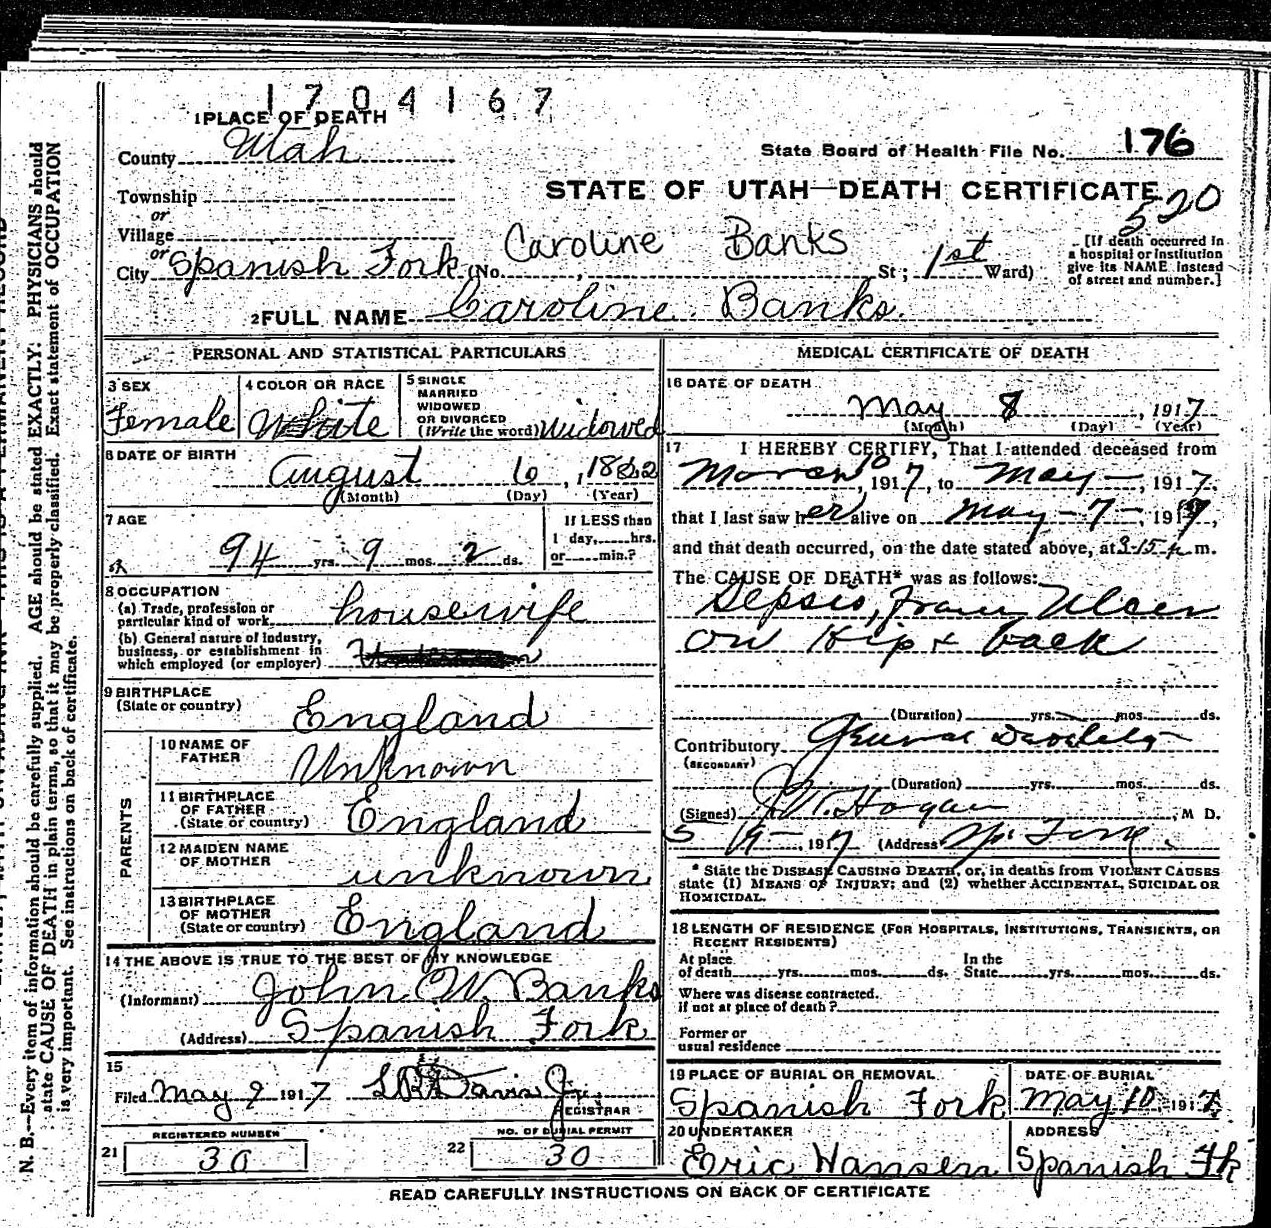 1704167
1 PLACE OF DEATH
County Utah
State Board of Health File No. 176
Township
STATE OF UTAH—DEATH CERTIFICATE
520
or
Village
or
City Spanish Fork (No. Caroline Banks St; 1st Ward)
[If death occurred in
a hospital or institution
give its NAME instead
of street and number.]
2 FULL NAME Caroline Banks.
PERSONAL AND STATISTICAL PARTICULARS
3 SEX
Female
4 COLOR OR RACE
White
5 SINGLE
MARRIED
WIDOWED
OR DIVORCED
(Write the word) Widowed
6 DATE OF BIRTH
August 6, 1822
(Month) (Day) (Year)
7 AGE
94 yrs. 9 mos. 2 ds.
If LESS than
1 day, hrs.
or min.?
8 OCCUPATION
(a) Trade, profession or
particular kind of work housewife
(b) General nature of industry,
business, or establishment in
which employed (or employer)
9 BIRTHPLACE
(State or country) England
PARENTS
10 NAME OF
FATHER Unknown
11 BIRTHPLACE
OF FATHER
(State or country) England
12 MAIDEN NAME
OF MOTHER unknown
13 BIRTHPLACE
OF MOTHER
(State or country) England
14 THE ABOVE IS TRUE TO THE BEST OF MY KNOWLEDGE
(Informant) John W. Banks
(Address) Spanish Fork
15
Filed May 9 1917 Davis Jr.
REGISTRAR
REGISTERED NUMBER
21 30
NO. OF BURIAL PERMIT
22 30
MEDICAL CERTIFICATE OF DEATH
16 DATE OF DEATH
May 8, 1917
(Month) (Day) (Year)
17 I HEREBY CERTIFY, That I attended deceased from
March 10, 1917, to May —, 1917,
that I last saw her alive on May - 7 -, 1917,
and that death occurred, on the date stated above, at 3-15 p m.
The CAUSE OF DEATH* was as follows:
Sepsis, from Ulcer
on Hip + back
(Duration) yrs. mos. ds.
Contributory General Debility
(SECONDARY)
(Duration) yrs. mos. ds.
(Signed) Hogan, M D.
5/9 -, 1917 (Address) Sp. Fork.
* State the DISEASE CAUSING DEATH, or, in deaths from VIOLENT CAUSES
state (1) MEANS OF INJURY; and (2) whether ACCIDENTAL, SUICIDAL OR
HOMICIDAL.
18 LENGTH OF RESIDENCE (FOR HOSPITALS, INSTITUTIONS, TRANSIENTS, OR
RECENT RESIDENTS)
At place
of death yrs. mos. ds.
In the
State yrs. mos. ds.
Where was disease contracted.
if not at place of death?
Former or
usual residence
19 PLACE OF BURIAL OR REMOVAL
Spanish Fork
DATE OF BURIAL
May 10, 1917
20 UNDERTAKER
Eric Hansen
ADDRESS
Spanish Fk
READ CAREFULLY INSTRUCTIONS ON BACK OF CERTIFICATE
N. B.—Every item of information should be carefully supplied. AGE should be stated EXACTLY. PHYSICIANS should
state CAUSE OF DEATH in plain terms, so that it may be properly classified. Exact statement of OCCUPATION
is very important. See instructions on back of certificate.